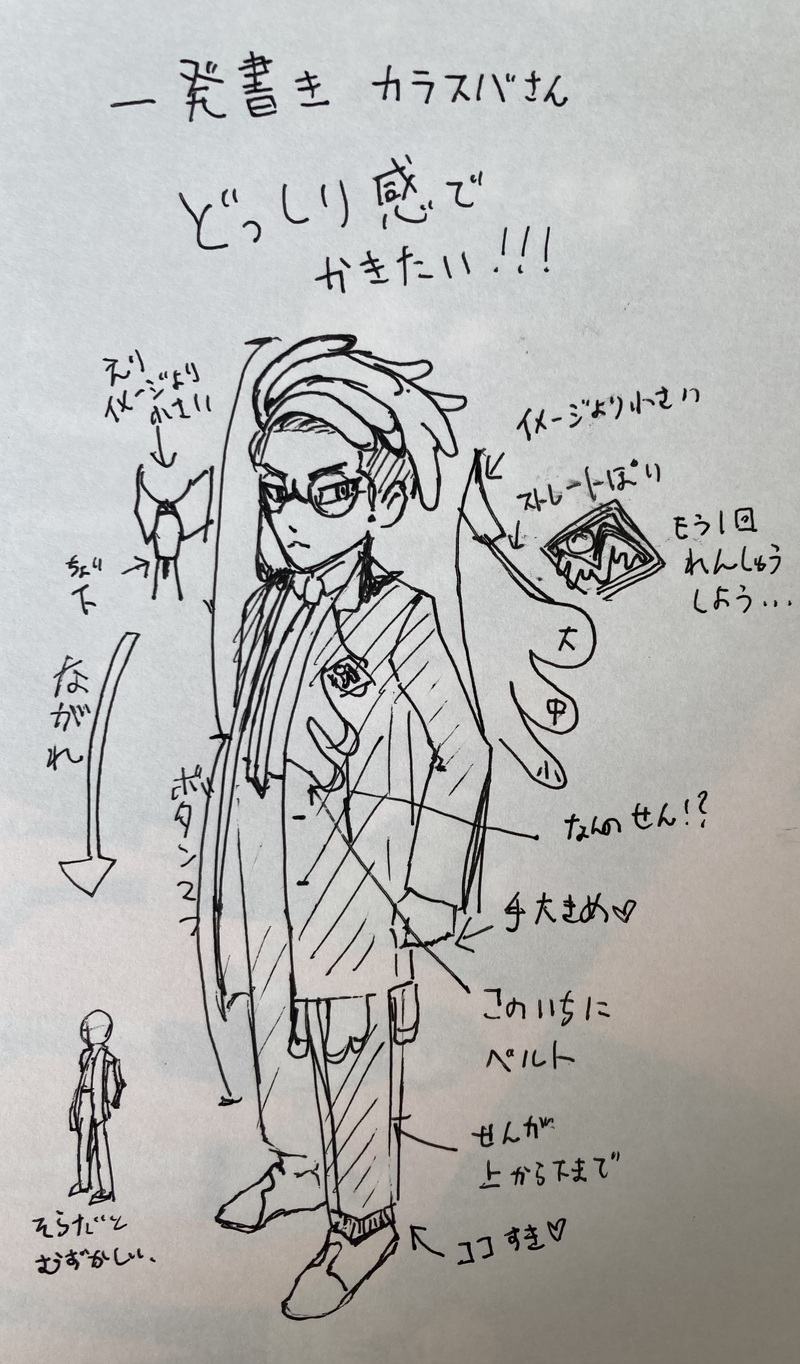 一発書き カラスバさん
どっしり感で
かきたい!!!
えり
イメージより
小さい
イメージより小さい
ストレートぽい
もう1回
れんしゅう
しよう...
ちょい
下
大
中
小
ながれ
ボタン2つ
なんのせん!?
手大きめ♡
このいちに
ベルト
せんが
上から下まで
ココすき♡
そらだと
むずかしい、